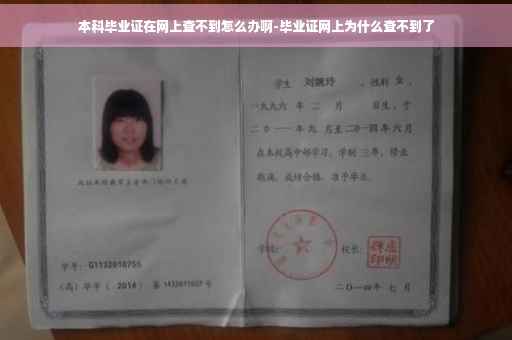 本科毕业证在网上查不到怎么办啊-毕业证网上为什么查不到了
学生 刘婉玲 ，性别 女 ，
一九九六 年 二 月 日生，于
二〇一一 年 九 月至二〇一四年 六 月
在本校高中部学习，学制 三年，修业
期满，成绩合格，准予毕业。
学号：G1132010755
(高) 毕字 ( 2014 ) 第 1432011027 号
学校：
校长：
二〇一四年 七 月